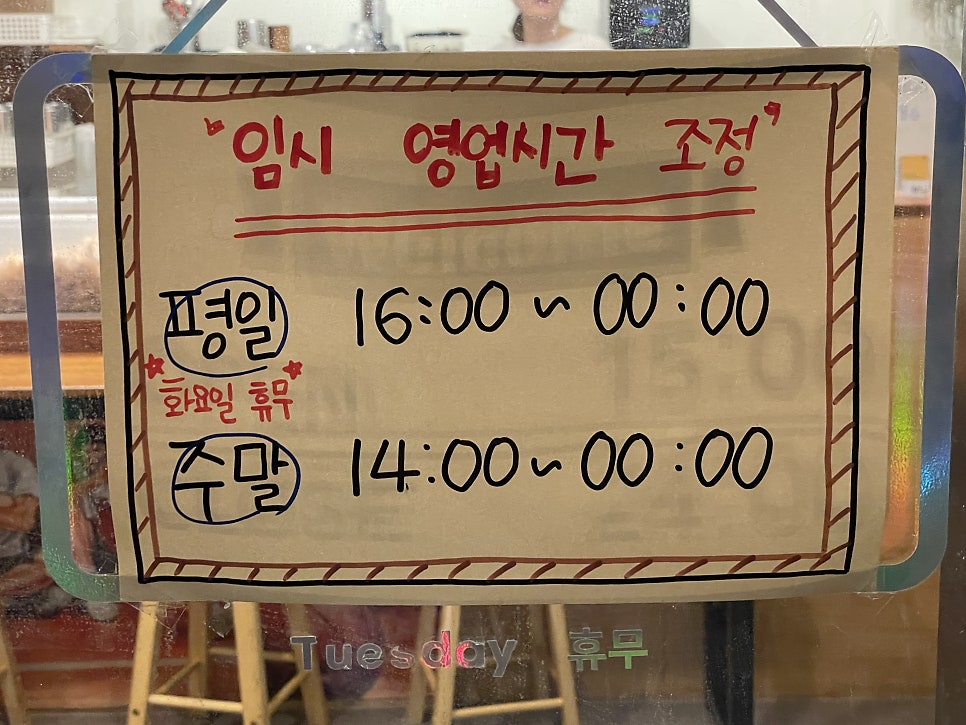 "임시 영업시간 조정"
평일 16:00 ~ 00:00
화요일 휴무
주말 14:00 ~ 00:00
Tuesday 휴무